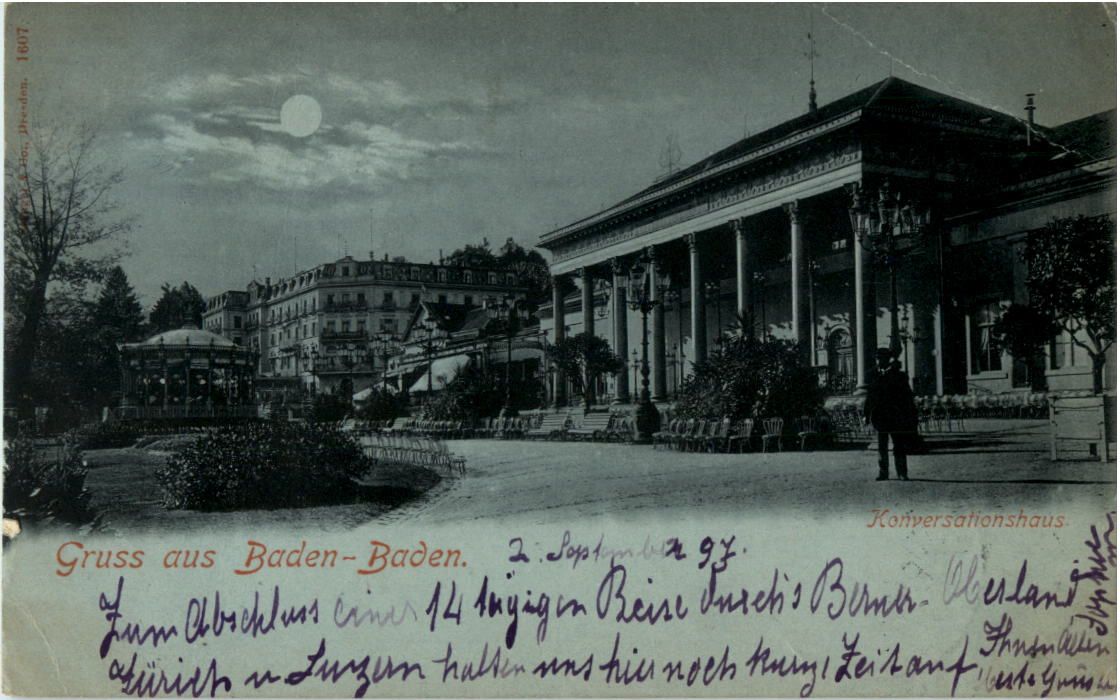 1607
Dresden.
Konversationshaus.
Gruss aus Baden-Baden.
2. September 97.
Zum Abschluss einer 14 tägigen Reise durch's Berner-Oberland
Zürich u Luzern halten uns hier noch kurze Zeit auf
Ihnen Allen
beste Grüsse